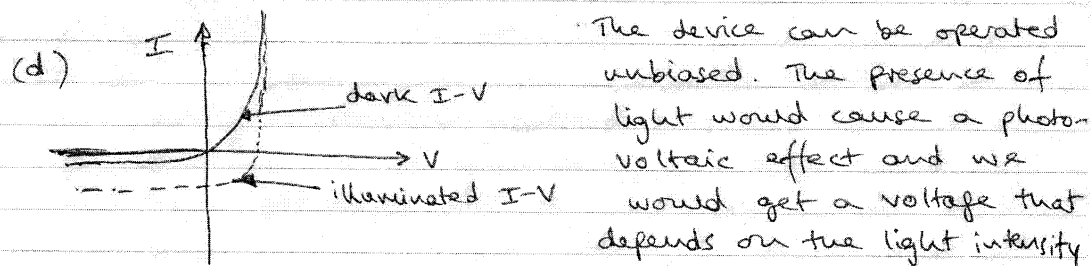 (d)
I
dark I-V
V
illuminated I-V
The device can be operated
unbiased. The presence of
light would cause a photo-
voltaic effect and we
would get a voltage that
depends on the light intensity